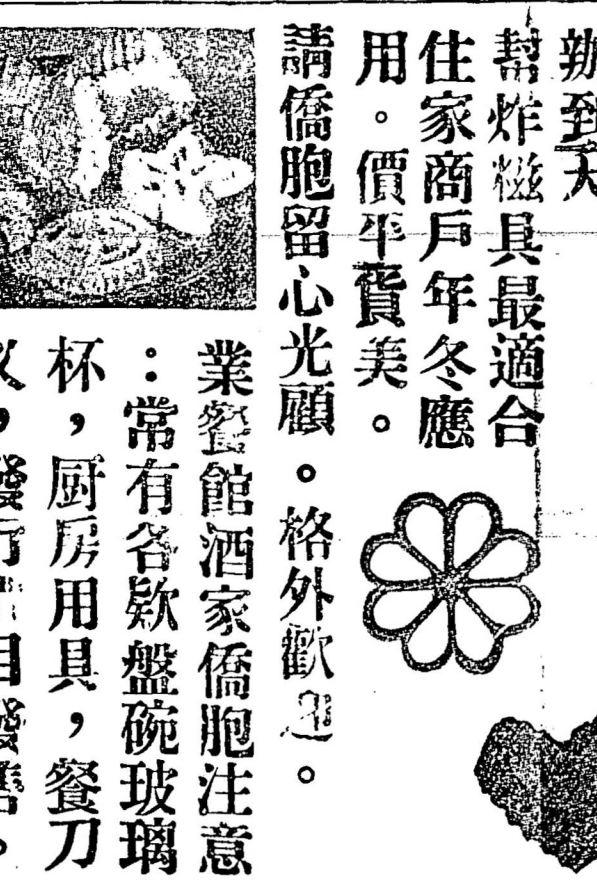 辦到大
幫炸糍具最適合
住家商戶年冬應
用。價平貨美。
請僑胞留心光顧。格外歡迎。
業餐館酒家僑胞注意
：常有各欵盤碗玻璃
杯，厨房用具，餐刀